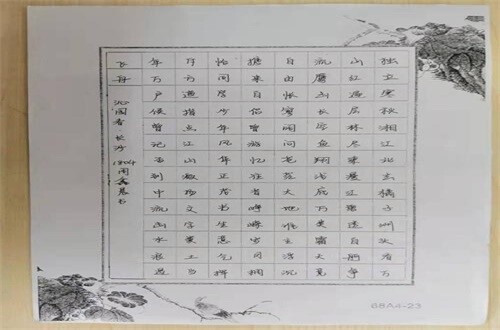 独立寒秋湘江北去橘子洲头看万
山红遍层林尽染漫江碧透百舸争
流鹰击长空鱼翔浅底万类霜天竞
自由怅寥廓问苍茫大地谁主浮沉
携来百侣曾游忆往昔峥嵘岁月稠
恰同学少年风华正茂书生意气挥
斥方遒指点江山激扬文字粪土当
年万户侯曾记否到中流击水浪遏
飞舟
沁园春 长沙 书
68A4-23